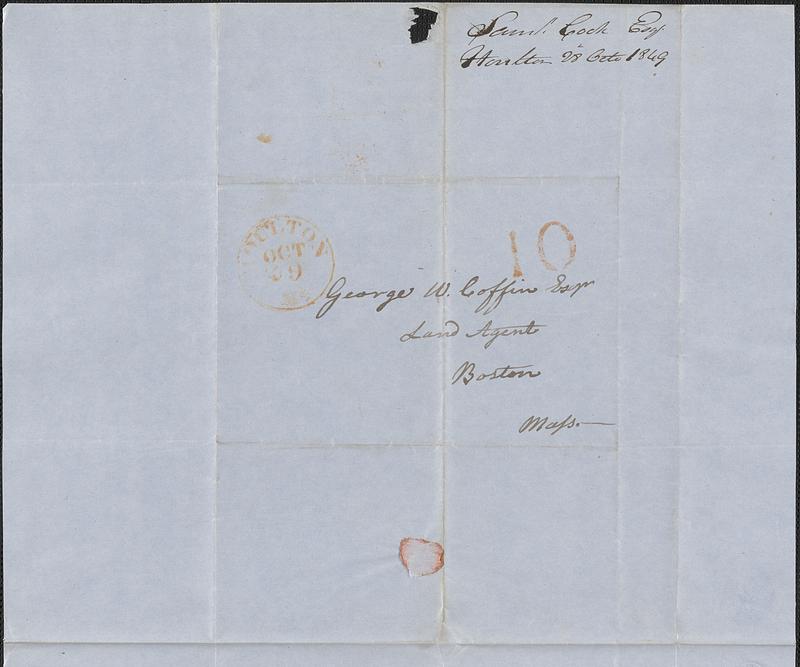 Saml. Cook Esq
Houlton 28 Octo 1849
HOULTON
OCT
29
10
George W. Coffin Esqr
Land Agent
Boston
Mass.